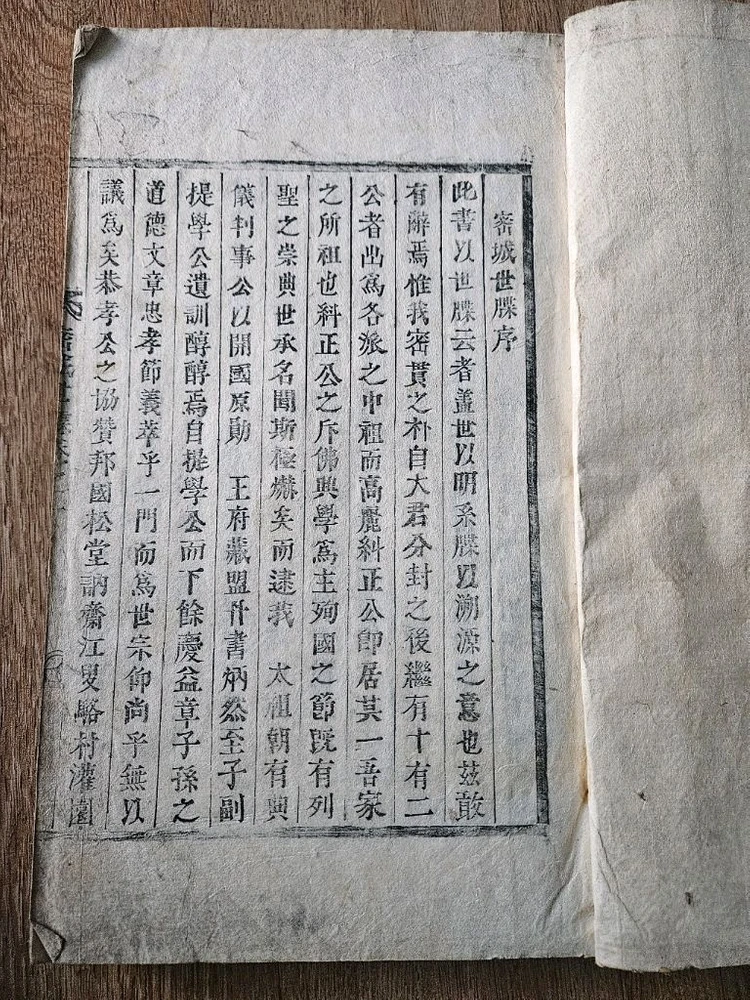 密城世牒序
此書以世牒云者盖世以明系牒以溯源之意也茲敢
有辭焉惟我密貫之朴自大君分封之後繼有十有二
公者出爲各派之中祖而高麗糾正公卽居其一吾家
之所祖也糾正公之斥佛興學爲主殉國之節旣有列
聖之崇典世承名閥斯極爀矣而逮我 太祖朝有興
儀判事公以開國原勛 王府藏盟什書炳然至子副
提學公遺訓醇醇焉自提學公而下餘慶益章子孫之
道德文章忠孝節義萃乎一門而爲世宗仰尙乎無以
議爲矣恭孝公之協贊邦國松堂訥齋江叟駱村灌園